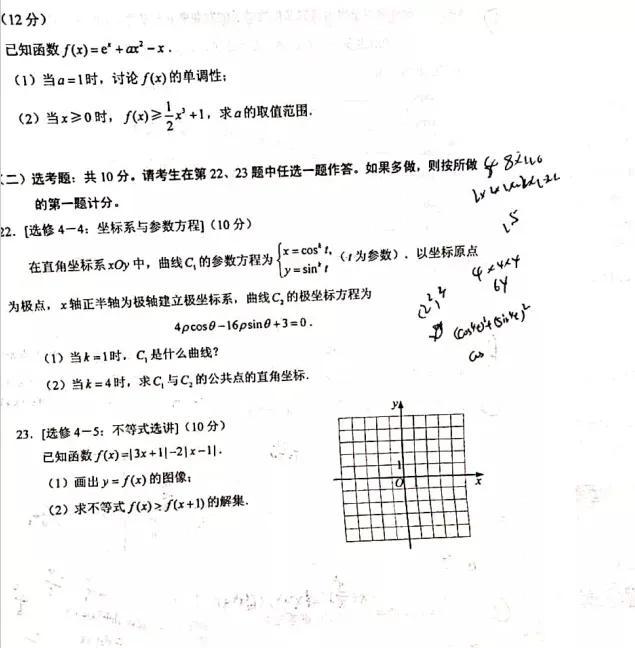 (12分)
已知函数 f(x)=eˣ+ax²-x.
(1)当a=1时,讨论f(x)的单调性;
(2)当x≥0时,f(x)≥1/2x³+1,求a的取值范围.
(二)选考题:共10分。请考生在第22、23题中任选一题作答。如果多做,则按所做
的第一题计分。
22.[选修4-4:坐标系与参数方程](10分)
在直角坐标系xOy中,曲线C₁的参数方程为{x=cosᵏt, y=sinᵏt (t为参数).以坐标原点
为极点,x轴正半轴为极轴建立极坐标系,曲线C₂的极坐标方程为
4ρcosθ-16ρsinθ+3=0.
(1)当k=1时,C₁是什么曲线?
(2)当k=4时,求C₁与C₂的公共点的直角坐标.
23.[选修4-5:不等式选讲](10分)
已知函数f(x)=|3x+1|-2|x-1|.
(1)画出y=f(x)的图像;
(2)求不等式f(x)>f(x+1)的解集.
y
1
O
1
x
15
4×4×4
64
cos